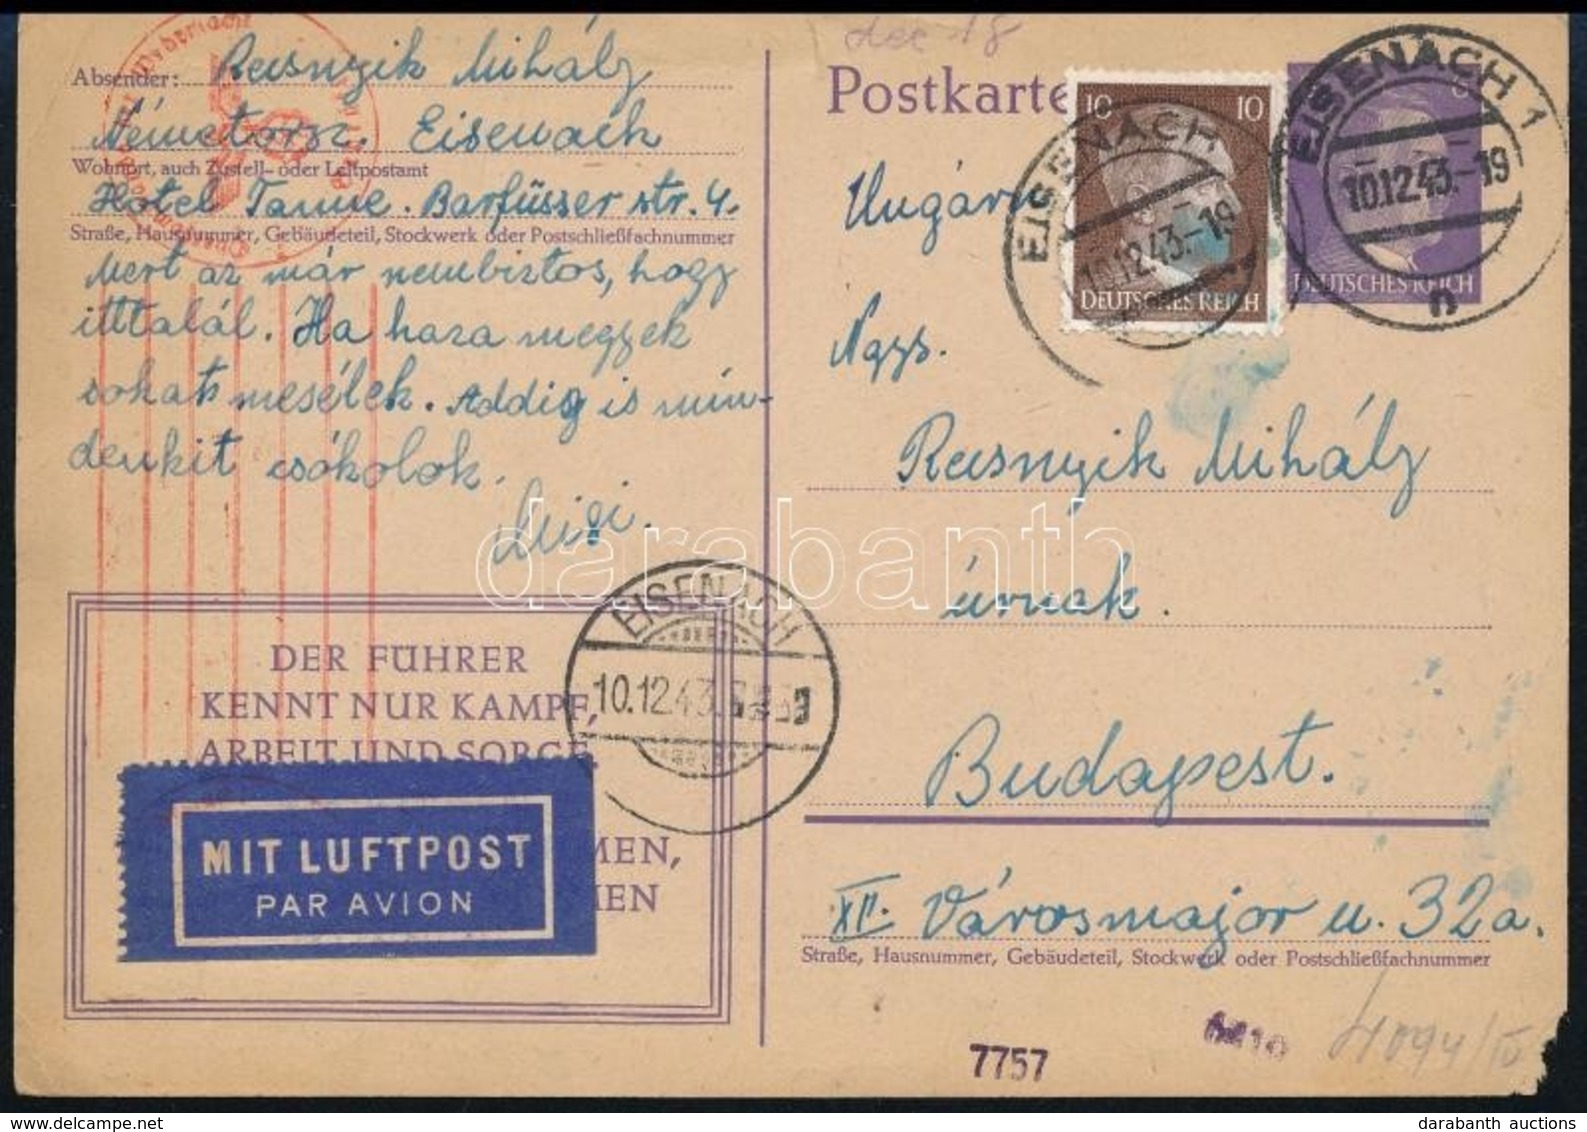 dec 18
Absender: Rusnyik Mihály
Németorsz. Eisenach
Wohnort, auch Zustell- oder Leitpostamt
Hotel Tanne. Barfüsser str. 4.
Straße, Hausnummer, Gebäudeteil, Stockwerk oder Postschließfachnummer
Mert az már nembiztos, hogy
itttalál. Ha haza megyek
sokat mesélek. Addig is min-
denkit csókolok.
DER FÜHRER
KENNT NUR KAMPF,
ARBEIT UND SORGE
MEN,
MEN
MIT LUFTPOST
PAR AVION
EISENACH
10.12.43.
Postkarte
10 10
DEUTSCHES REICH
EISENACH
10.12.43.-19
6
DEUTSCHES REICH
EISENACH 1
10.12.43.-19
n
Nagys.
Rusnyik Mihály
úrnak.
Budapest.
XII. Városmajor u. 32a.
Straße, Hausnummer, Gebäudeteil, Stockwerk oder Postschließfachnummer
7757
4094/IV
darabanth
darabanth auctions